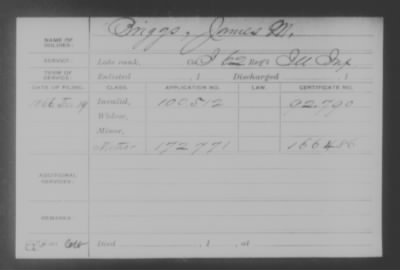 NAME OF SOLDIER: Briggs, James M.
SERVICE: Late rank, Co. I 52 Reg't Ill Inf
TERM OF SERVICE: Enlisted , 1 Discharged , 1
DATE OF FILING. CLASS. APPLICATION NO. LAW. CERTIFICATE NO.
19 Invalid, 100512 92.790
Widow,
Minor,
Mother 172771 166486
ADDITIONAL SERVICES:
REMARKS:
Died , 1 , at